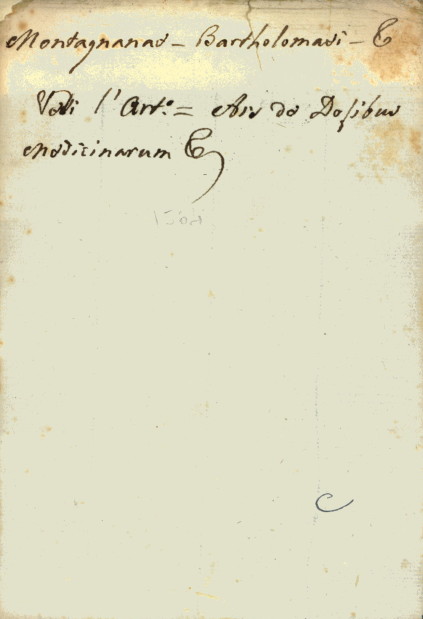 Montagnanae - Bartholomaei - &
Vedi l'Art.º = Ars de Dosibus
Medicinarum &
C